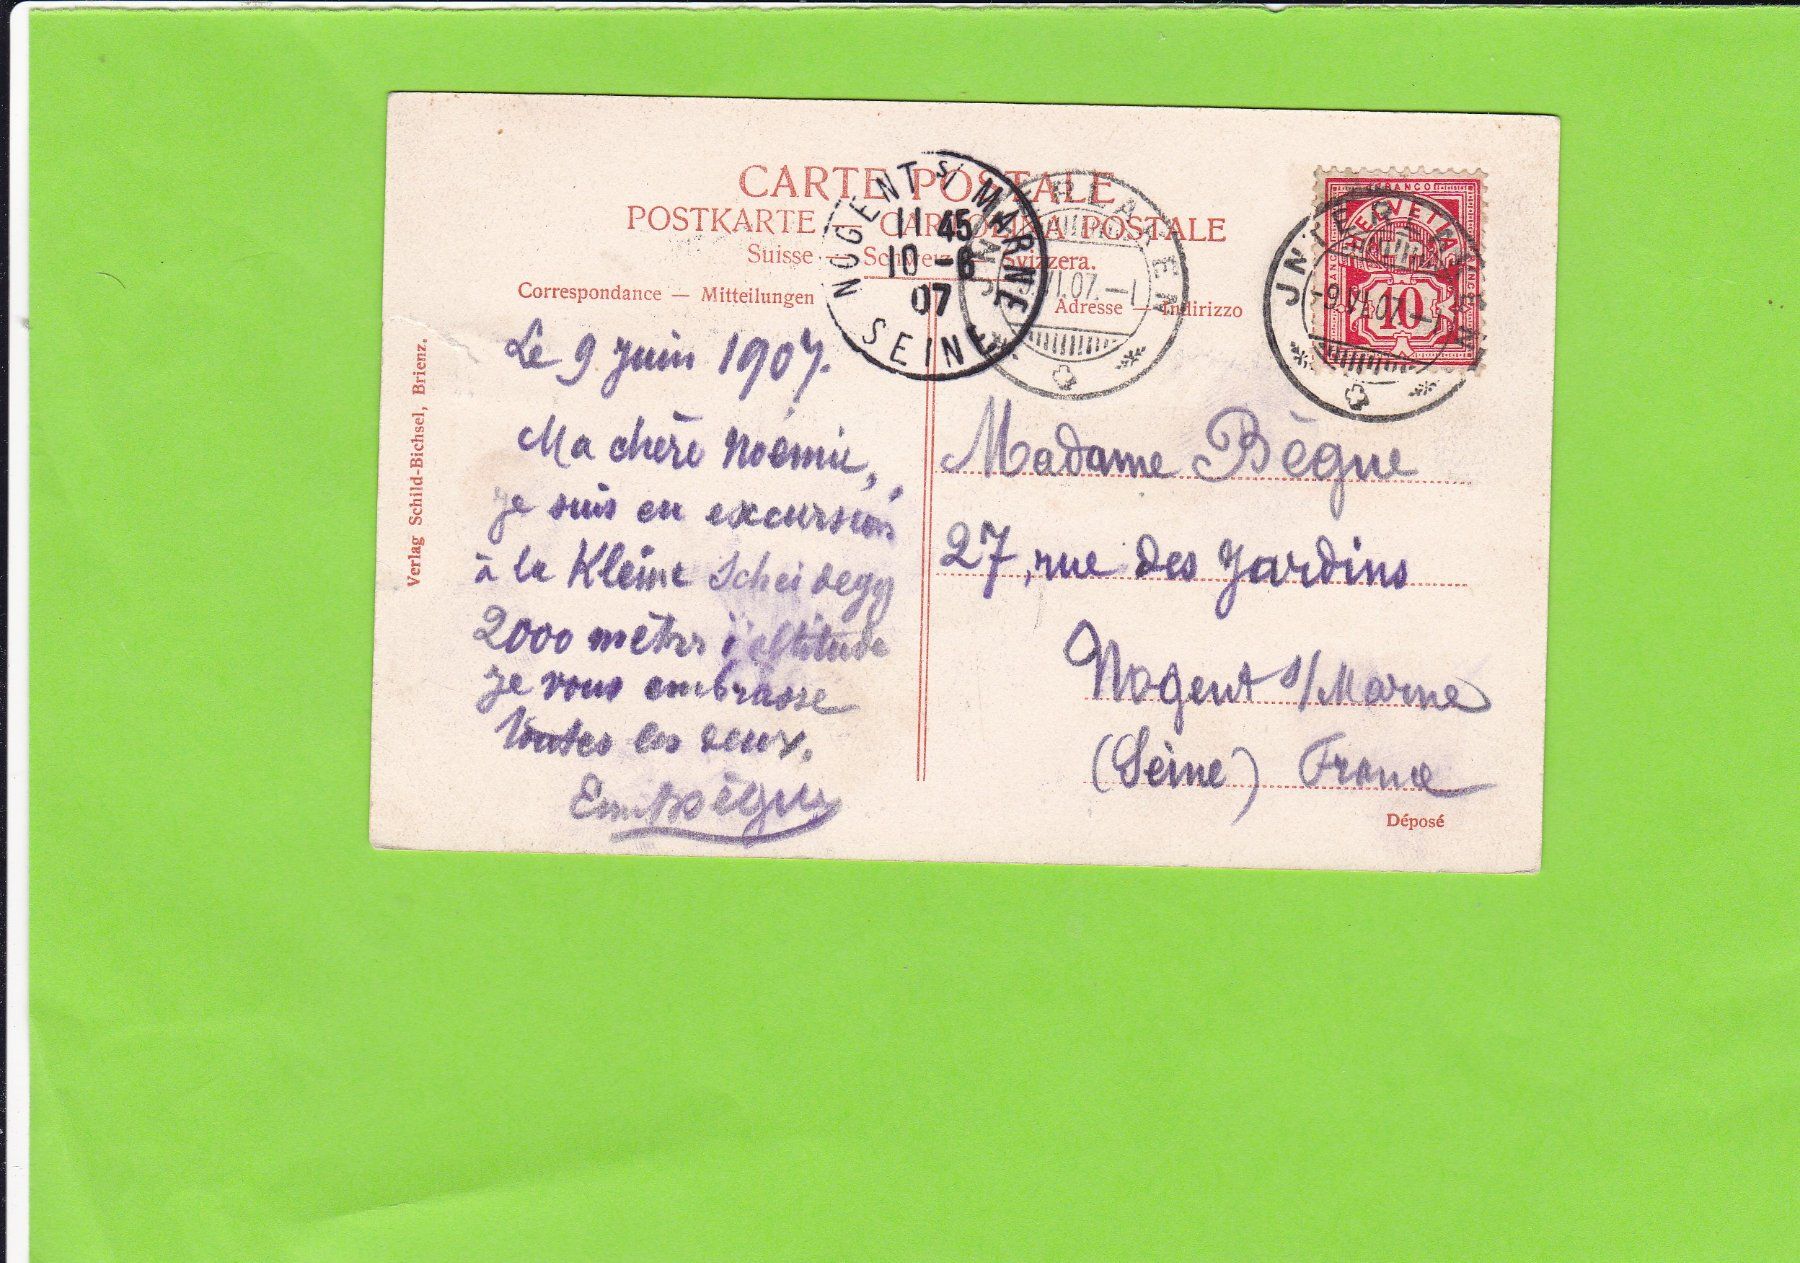 CARTE POSTALE
POSTKARTE — CARTOLINA POSTALE
Suisse — Schweiz — Svizzera.
Correspondance — Mitteilungen
Adresse — Indirizzo
NOGENT S/ MARNE
11 45
10 - 6
07
SEINE
JNTERLAKEN
9.VI.07.–1
JNTERLAKEN
-9.VI.07.–1
FRANCO
HELVETIA
10
Verlag Schild-Bichsel, Brienz.
Le 9 Juin 1907.
Ma chère Noémie,
je suis en excursion
à la Kleine Scheidegg
2000 mètres d'altitude
Je vous embrasse
toutes les deux.
Em Bègue
Madame Bègue
27, rue des Jardins
Nogent s/Marne
(Seine) France
Déposé